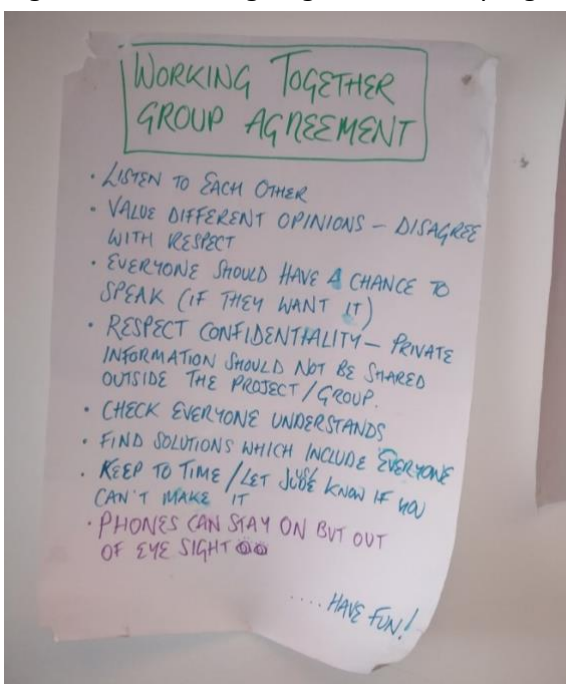 WORKING TOGETHER
GROUP AGREEMENT
• LISTEN TO EACH OTHER
• VALUE DIFFERENT OPINIONS – DISAGREE
WITH RESPECT
• EVERYONE SHOULD HAVE A CHANCE TO
SPEAK (IF THEY WANT IT)
• RESPECT CONFIDENTIALITY – PRIVATE
INFORMATION SHOULD NOT BE SHARED
OUTSIDE THE PROJECT/GROUP.
• CHECK EVERYONE UNDERSTANDS
• FIND SOLUTIONS WHICH INCLUDE EVERYONE
• KEEP TO TIME/LET KNOW IF YOU
CAN'T MAKE IT
• PHONES CAN STAY ON BUT OUT
OF EYE SIGHT
.... HAVE FUN!